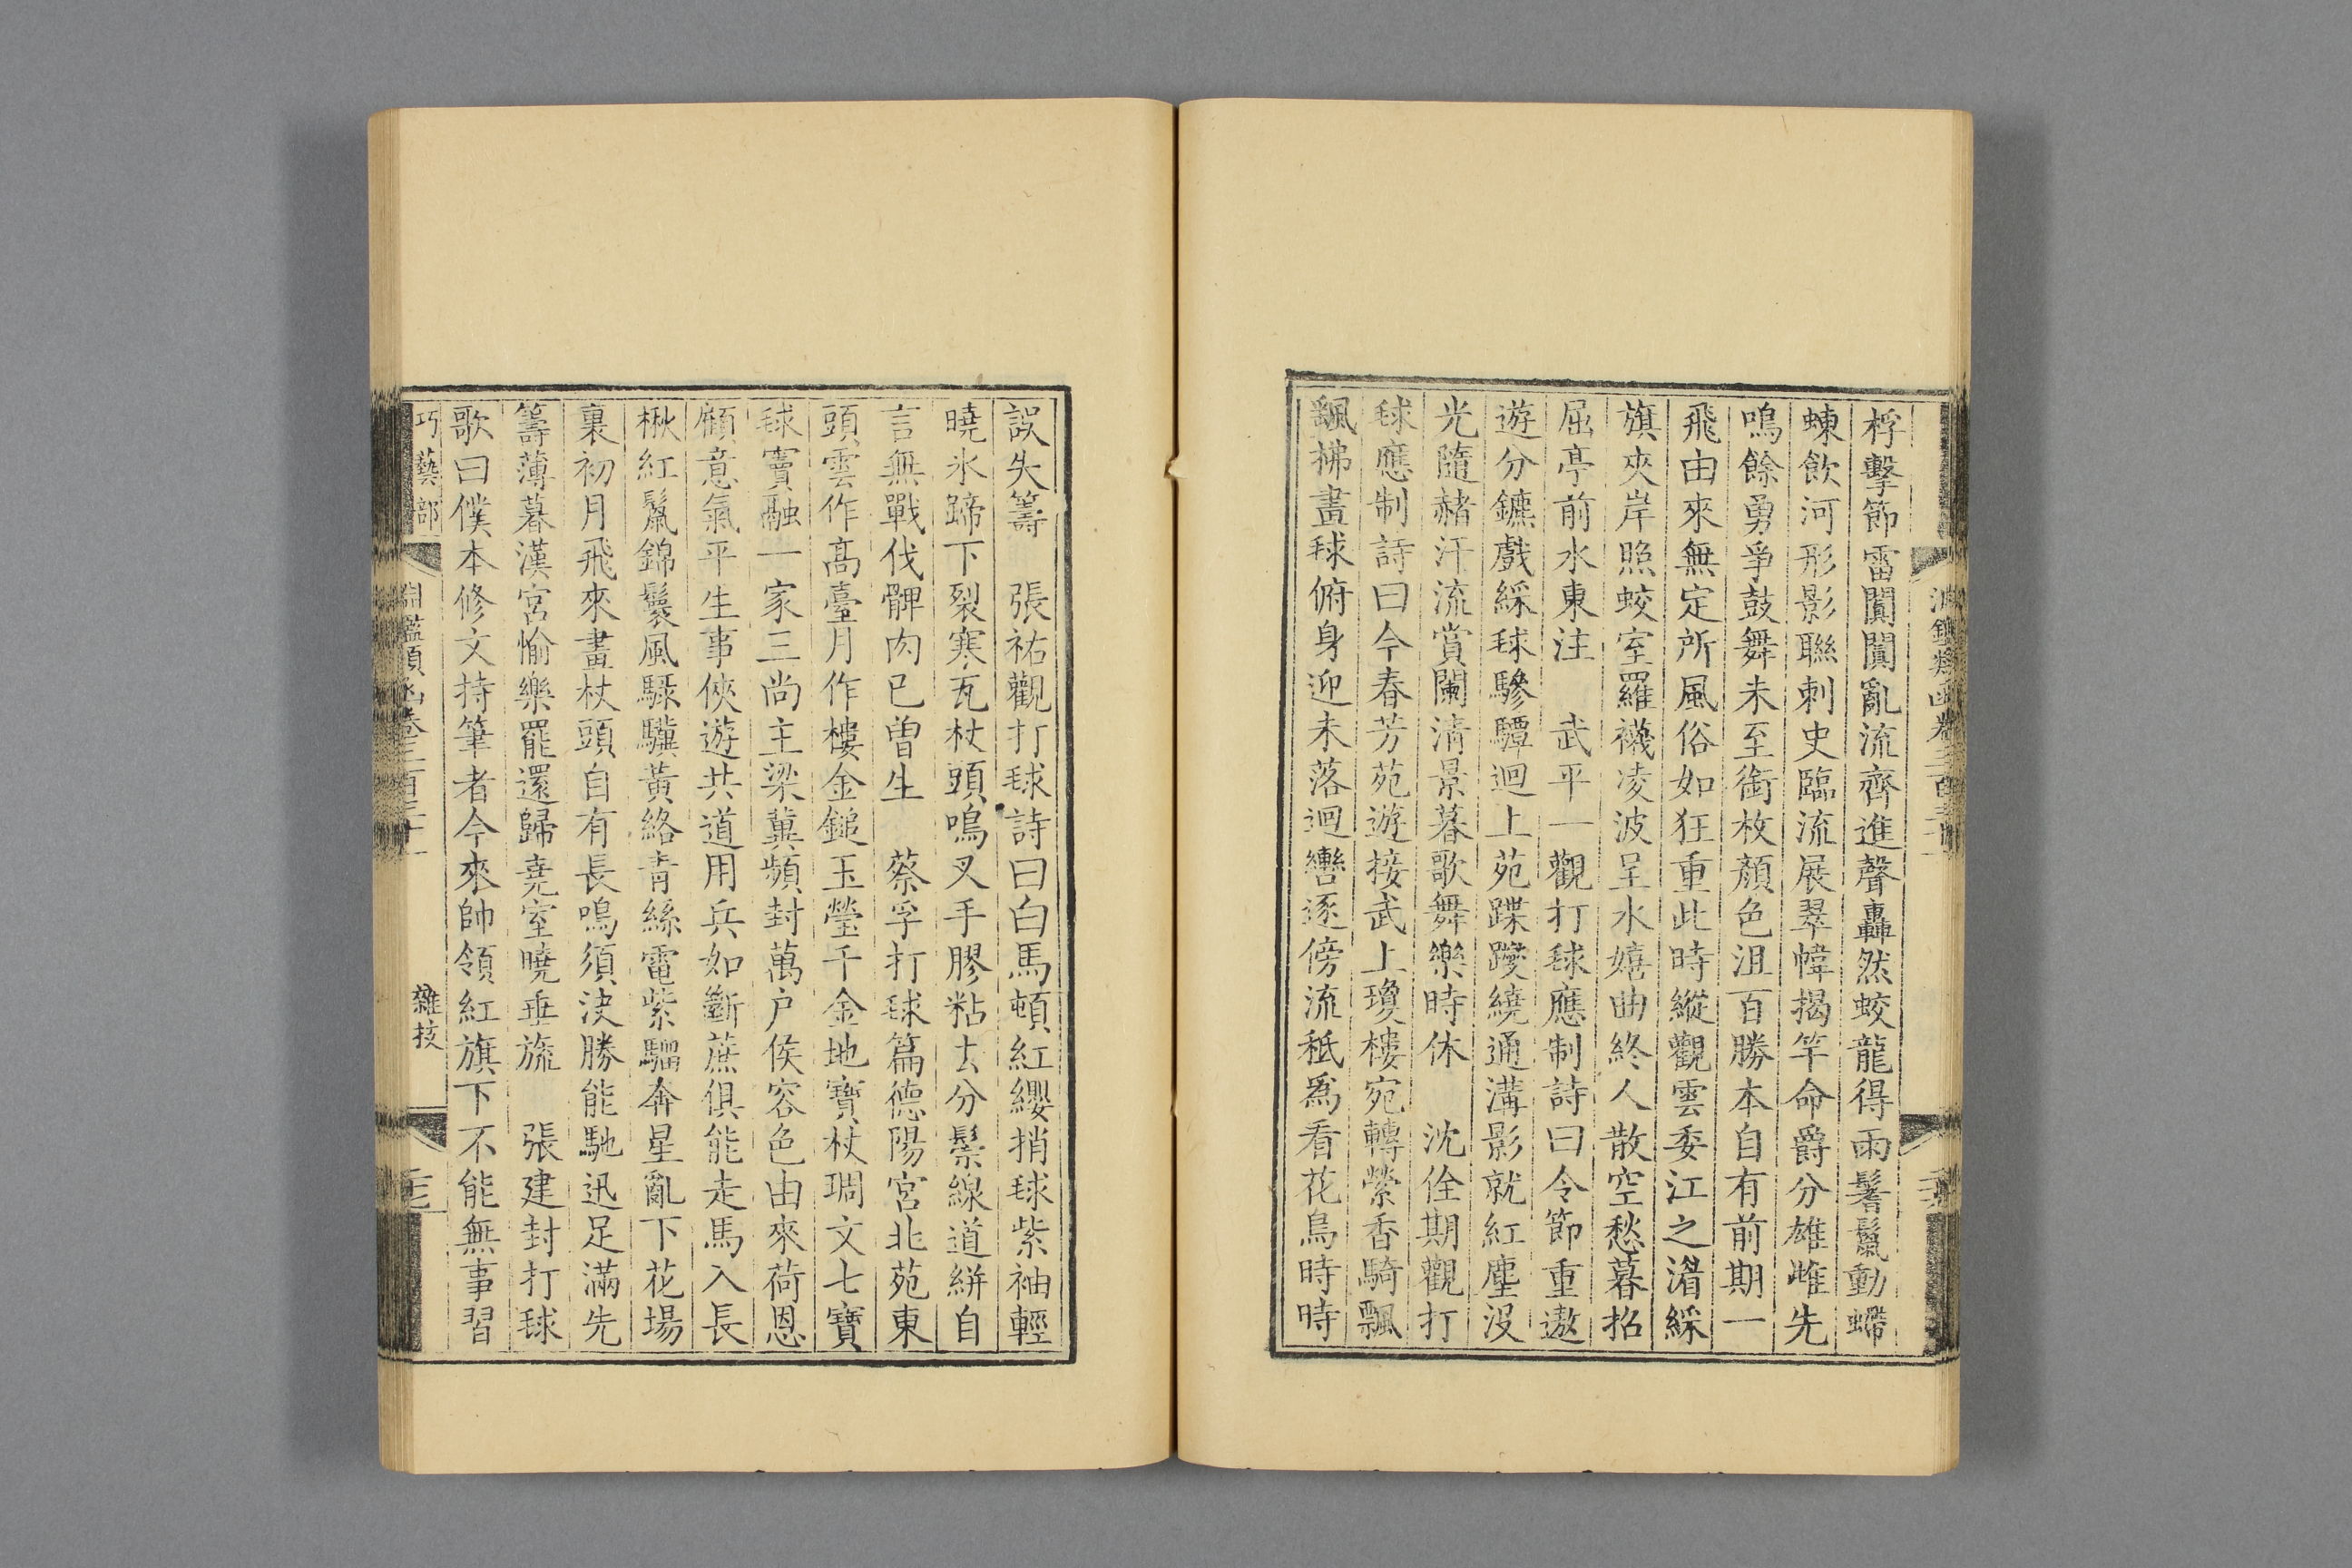 桴擊節雷闐闐亂流齊進聲轟然蛟龍得雨鬐鬛動螮
蝀飲河形影聯刺史臨流展翠幃揭竿命爵分雄雌先
鳴餘勇爭鼓舞未至銜枚顏色沮百勝本自有前期一
飛由來無定所風俗如狂重此時縱觀雲委江之湄綵
旗夾岸照蛟室羅襪凌波呈水嬉曲終人散空愁暮招
屈亭前水東注　武平一觀打毬應制詩曰令節重遨
遊分鑣戲綵毬驂驔迴上苑蹀躞繞通溝影就紅塵沒
光隨赭汗流賞闌清景暮歌舞樂時休　沈佺期觀打
毬應制詩曰今春芳苑遊接武上瓊樓宛轉縈香騎飄
颻拂畫毬俯身迎未落迴轡逐傍流秪爲看花鳥時時
誤失籌　張祐觀打毬詩曰白馬頓紅纓捎毬紫袖輕
曉氷蹄下裂寒瓦杖頭鳴叉手膠粘去分鬃線道絣自
言無戰伐髀肉已曾生　蔡孚打毬篇德陽宮北苑東
頭雲作高臺月作樓金鎚玉瑩千金地寶杖琱文七寶
毬竇融一家三尚主梁冀頻封萬户侯容色由來荷恩
顧意氣平生事俠遊共道用兵如斷蔗俱能走馬入長
楸紅鬛錦鬟風騄驥黃絡青絲電紫騮奔星亂下花場
裏初月飛來畫杖頭自有長鳴須決勝能馳迅足滿先
籌薄暮漢宮愉樂罷還歸堯室曉垂旒　張建封打毬
歌曰僕本修文持筆者今來帥領紅旗下不能無事習
巧藝部
雜技